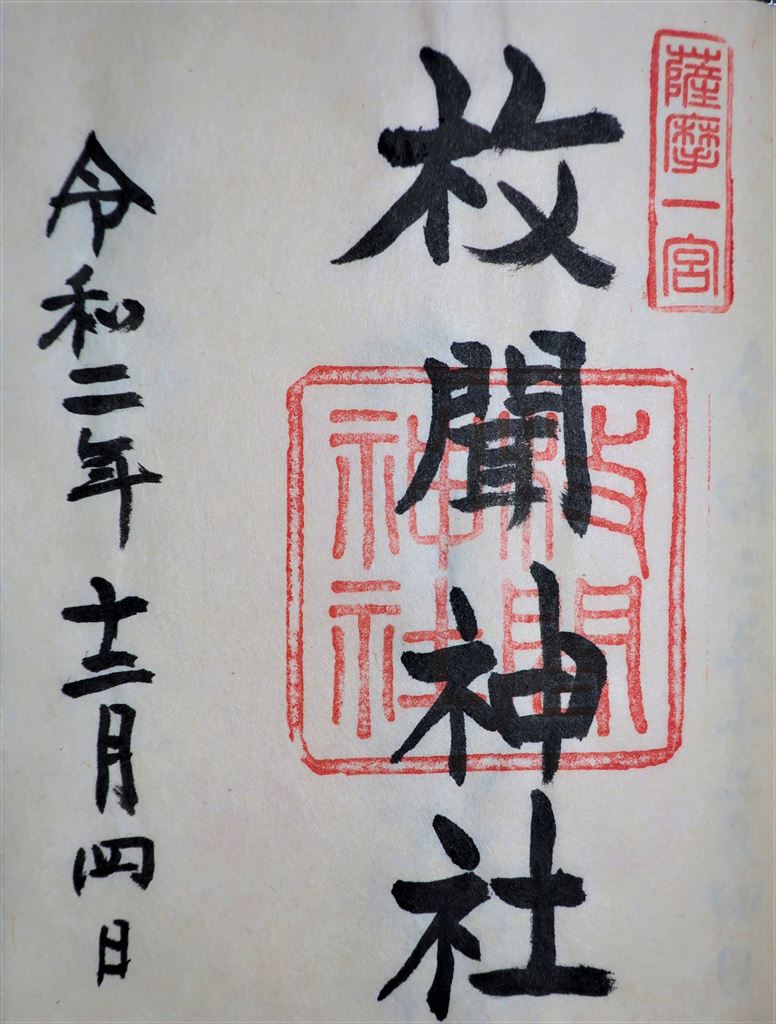 薩摩一宮
枚聞神社
枚聞神社
令和二年十二月四日